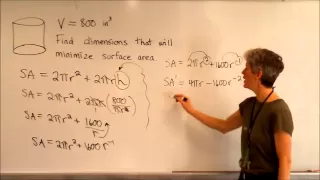 V = 800 in³
Find dimensions that will
minimize surface area
SA = 2πr² + 2πr h
SA = 2πr² + 2πr 800/πr²
SA = 2πr² + 1600/r
SA = 2πr² + 1600r⁻¹
SA = 2πr² + 1600r⁻¹
SA' = 4πr - 1600r⁻²